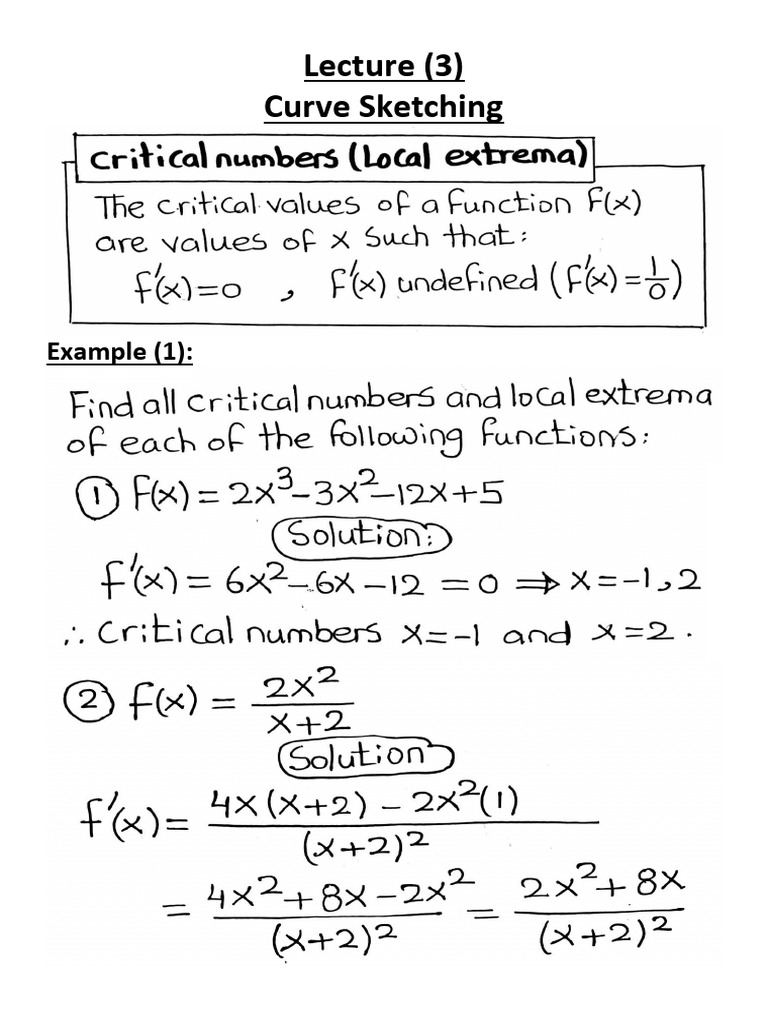 Lecture (3)
Curve Sketching
Critical numbers (Local extrema)
The critical values of a function f(x)
are values of x such that:
f'(x)=0 , f'(x) undefined (f'(x)=1/0)
Example (1):
Find all critical numbers and local extrema
of each of the following functions:
① f(x) = 2x³-3x²-12x+5
Solution:
f'(x) = 6x²-6x-12 = 0 ⇒ x=-1,2
∴ Critical numbers x=-1 and x=2.
② f(x) = 2x²/(x+2)
Solution
f'(x) = (4x(x+2) - 2x²(1))/(x+2)²
= (4x²+8x-2x²)/(x+2)² = (2x²+8x)/(x+2)²